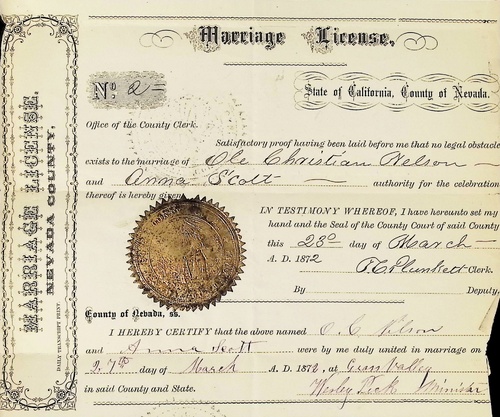 Marriage License,
No. 2=
State of California, County of Nevada.
MARRIAGE LICENSE.
NEVADA COUNTY.
DAILY TRANSCRIPT PRINT
Office of the County Clerk.
Satisfactory proof having been laid before me that no legal obstacle
exists to the marriage of Ole Christian Nelson
and Anna Scott authority for the celebration
thereof is hereby given
IN TESTIMONY WHEREOF, I have hereunto set my
hand and the Seal of the County Court of said County
this 23d day of March
A. D. 1872 Plunkett Clerk.
By Deputy,
County of Nevada, ss.
I HEREBY CERTIFY that the above named O. C. Nilson
and Anna Scott were by me duly united in marriage on
27th day of March A. D. 1872, at Grass Valley
in said County and State. Wesley Minister